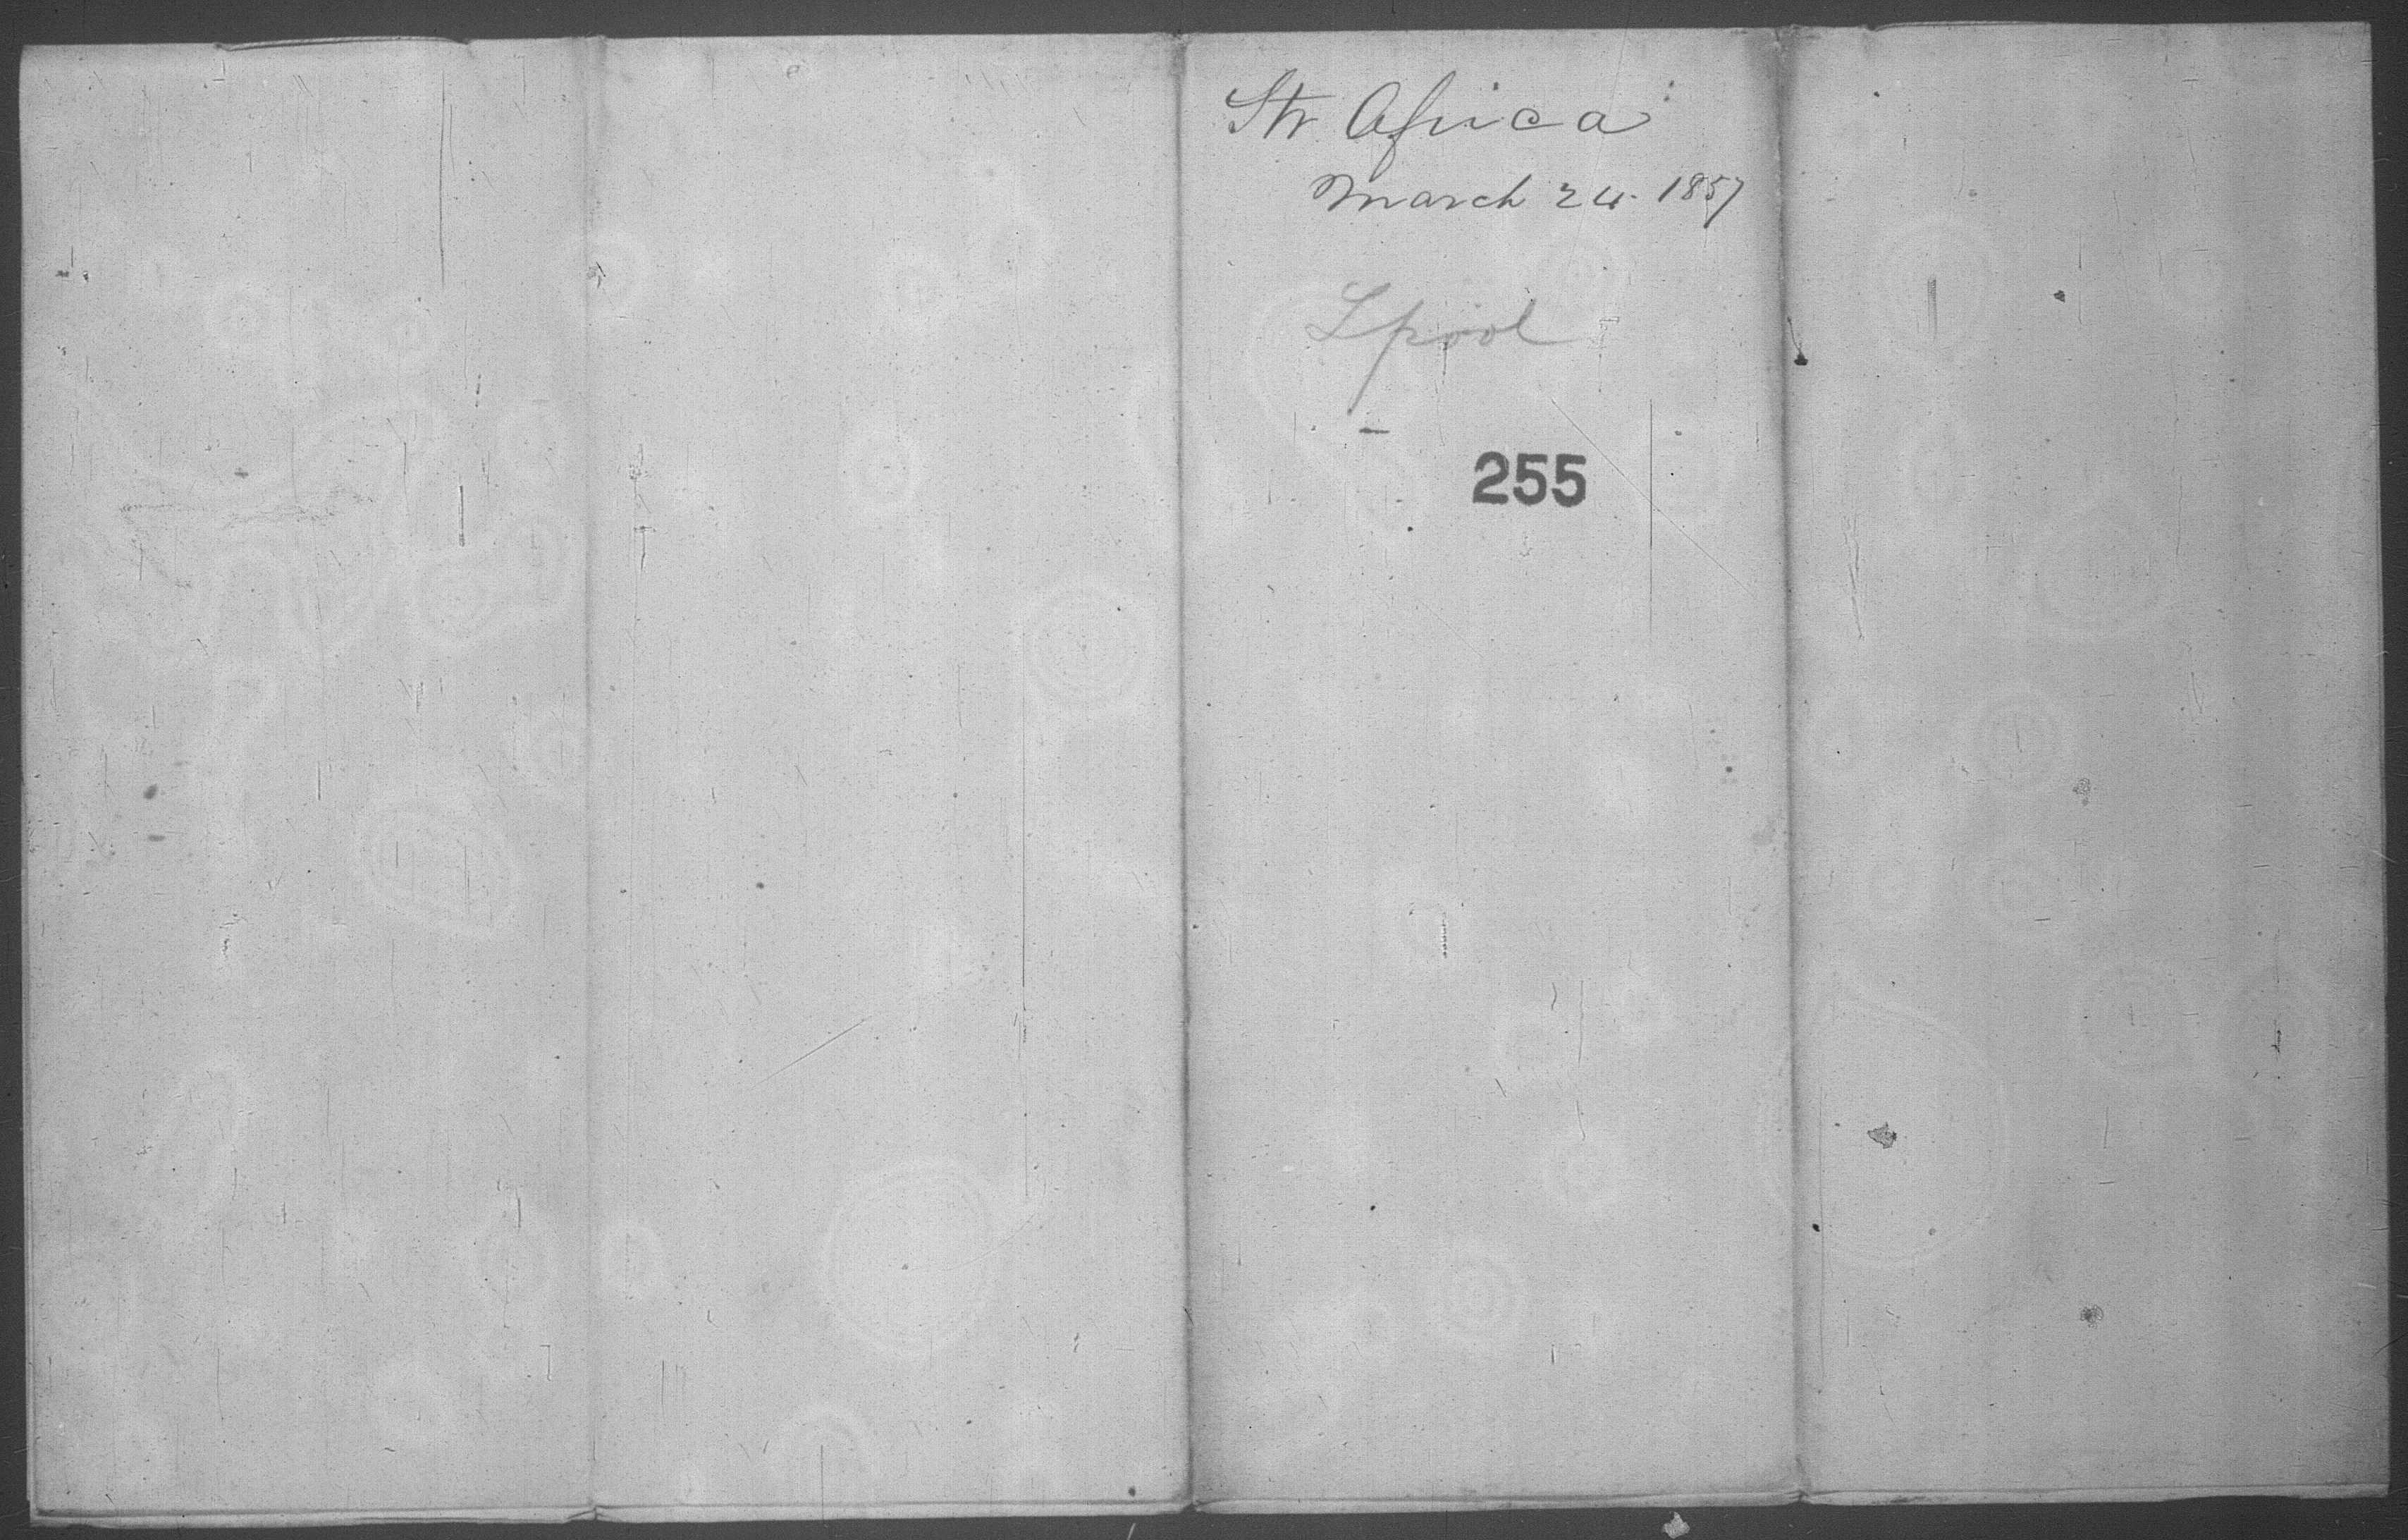 Str Africa
March 24. 1857
Lpool
255